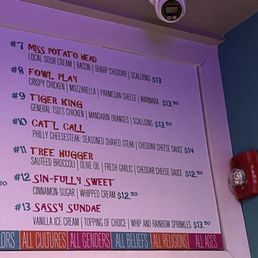 #7 MISS POTATO HEAD
LOCAL SOUR CREAM | BACON | SHARP CHEDDAR | SCALLIONS $13
#8 FOWL PLAY
CRISPY CHICKEN | MOZZARELLA | PARMESAN CHEESE | MARINARA $13.50
#9 TIGER KING
GENERAL TSO'S CHICKEN | MANDARIN ORANGES | SCALLIONS $13.50
#10 CAT'L CALL
PHILLY CHEESESTEAK- SEASONED SHAVED STEAK | CHEDDAR CHEESE SAUCE $14
#11 TREE HUGGER
SAUTÉED BROCCOLI | OLIVE OIL | FRESH GARLIC | CHEDDAR CHEESE SAUCE $12.50
#12 SIN-FULLY SWEET
CINNAMON-SUGAR | WHIPPED CREAM $12.50
#13 SASSY SUNDAE
VANILLA ICE CREAM | TOPPING OF CHOICE | WHIP AND RAINBOW SPRINKLES $13.50
ALL CULTURES ALL GENDERS ALL BELIEFS ALL RELIGIONS ALL AGES